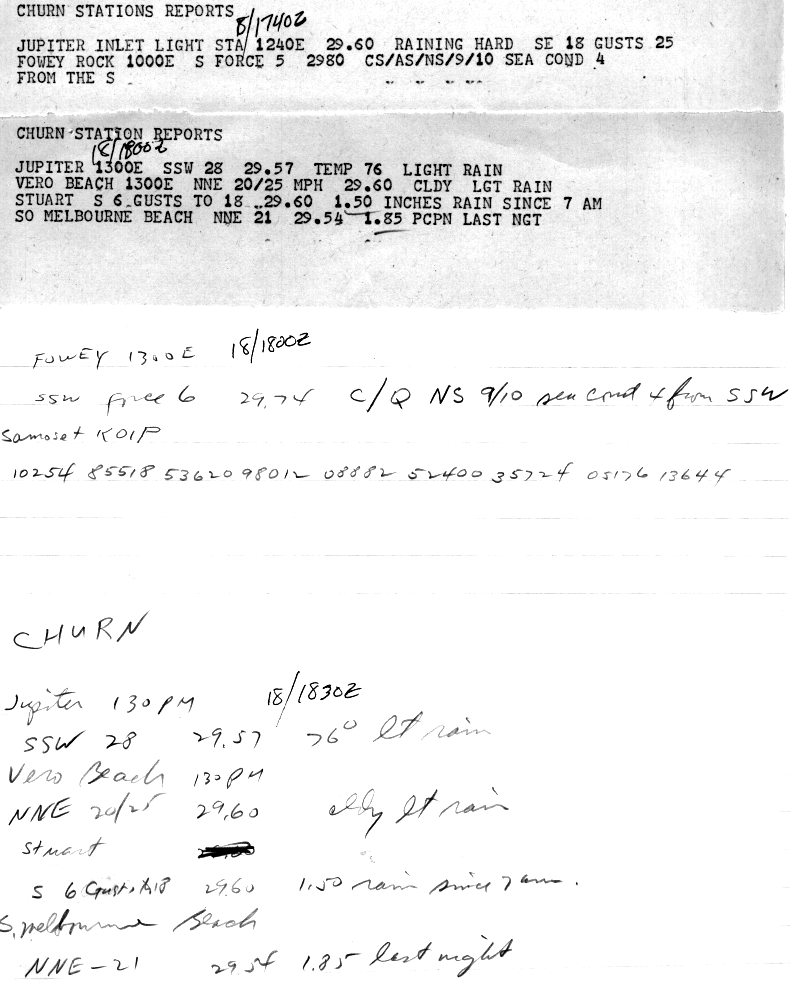 CHURN STATIONS REPORTS
8/1740Z
JUPITER INLET LIGHT STA 1240E 29.60 RAINING HARD SE 18 GUSTS 25
FOWEY ROCK 1000E S FORCE 5 2980 CS/AS/NS/9/10 SEA COND 4
FROM THE S
CHURN STATION REPORTS
18/1800Z
JUPITER 1300E SSW 28 29.57 TEMP 76 LIGHT RAIN
VERO BEACH 1300E NNE 20/25 MPH 29.60 CLDY LGT RAIN
STUART S 6 GUSTS TO 18 29.60 1.50 INCHES RAIN SINCE 7 AM
SO MELBOURNE BEACH NNE 21 29.54 1.85 PCPN LAST NGT
FOWEY 1300E 18/1800Z
SSW force 6 29.74 C/Q NS 9/10 sea cond 4 from SSW
Samoset KOIP
10254 85518 53620 98012 08882 52400 35724 05176 13644
CHURN
Jupiter 130 PM 18/1830Z
SSW 28 29.57 76° lt rain
Vero Beach 130 PM
NNE 20/25 29.60 cldy lt rain
Stuart
S 6 Gusts to 18 29.60 1.50 rain since 7 am.
S. Melbourne Beach
NNE - 21 29 54 1.85 last night